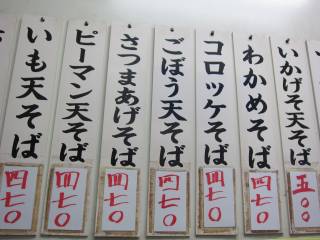 いかげそ天そば
五〇〇
わかめそば
四七〇
コロッケそば
四七〇
ごぼう天そば
四七〇
さつまあげそば
四七〇
ピーマン天そば
四七〇
いも天そば
四七〇